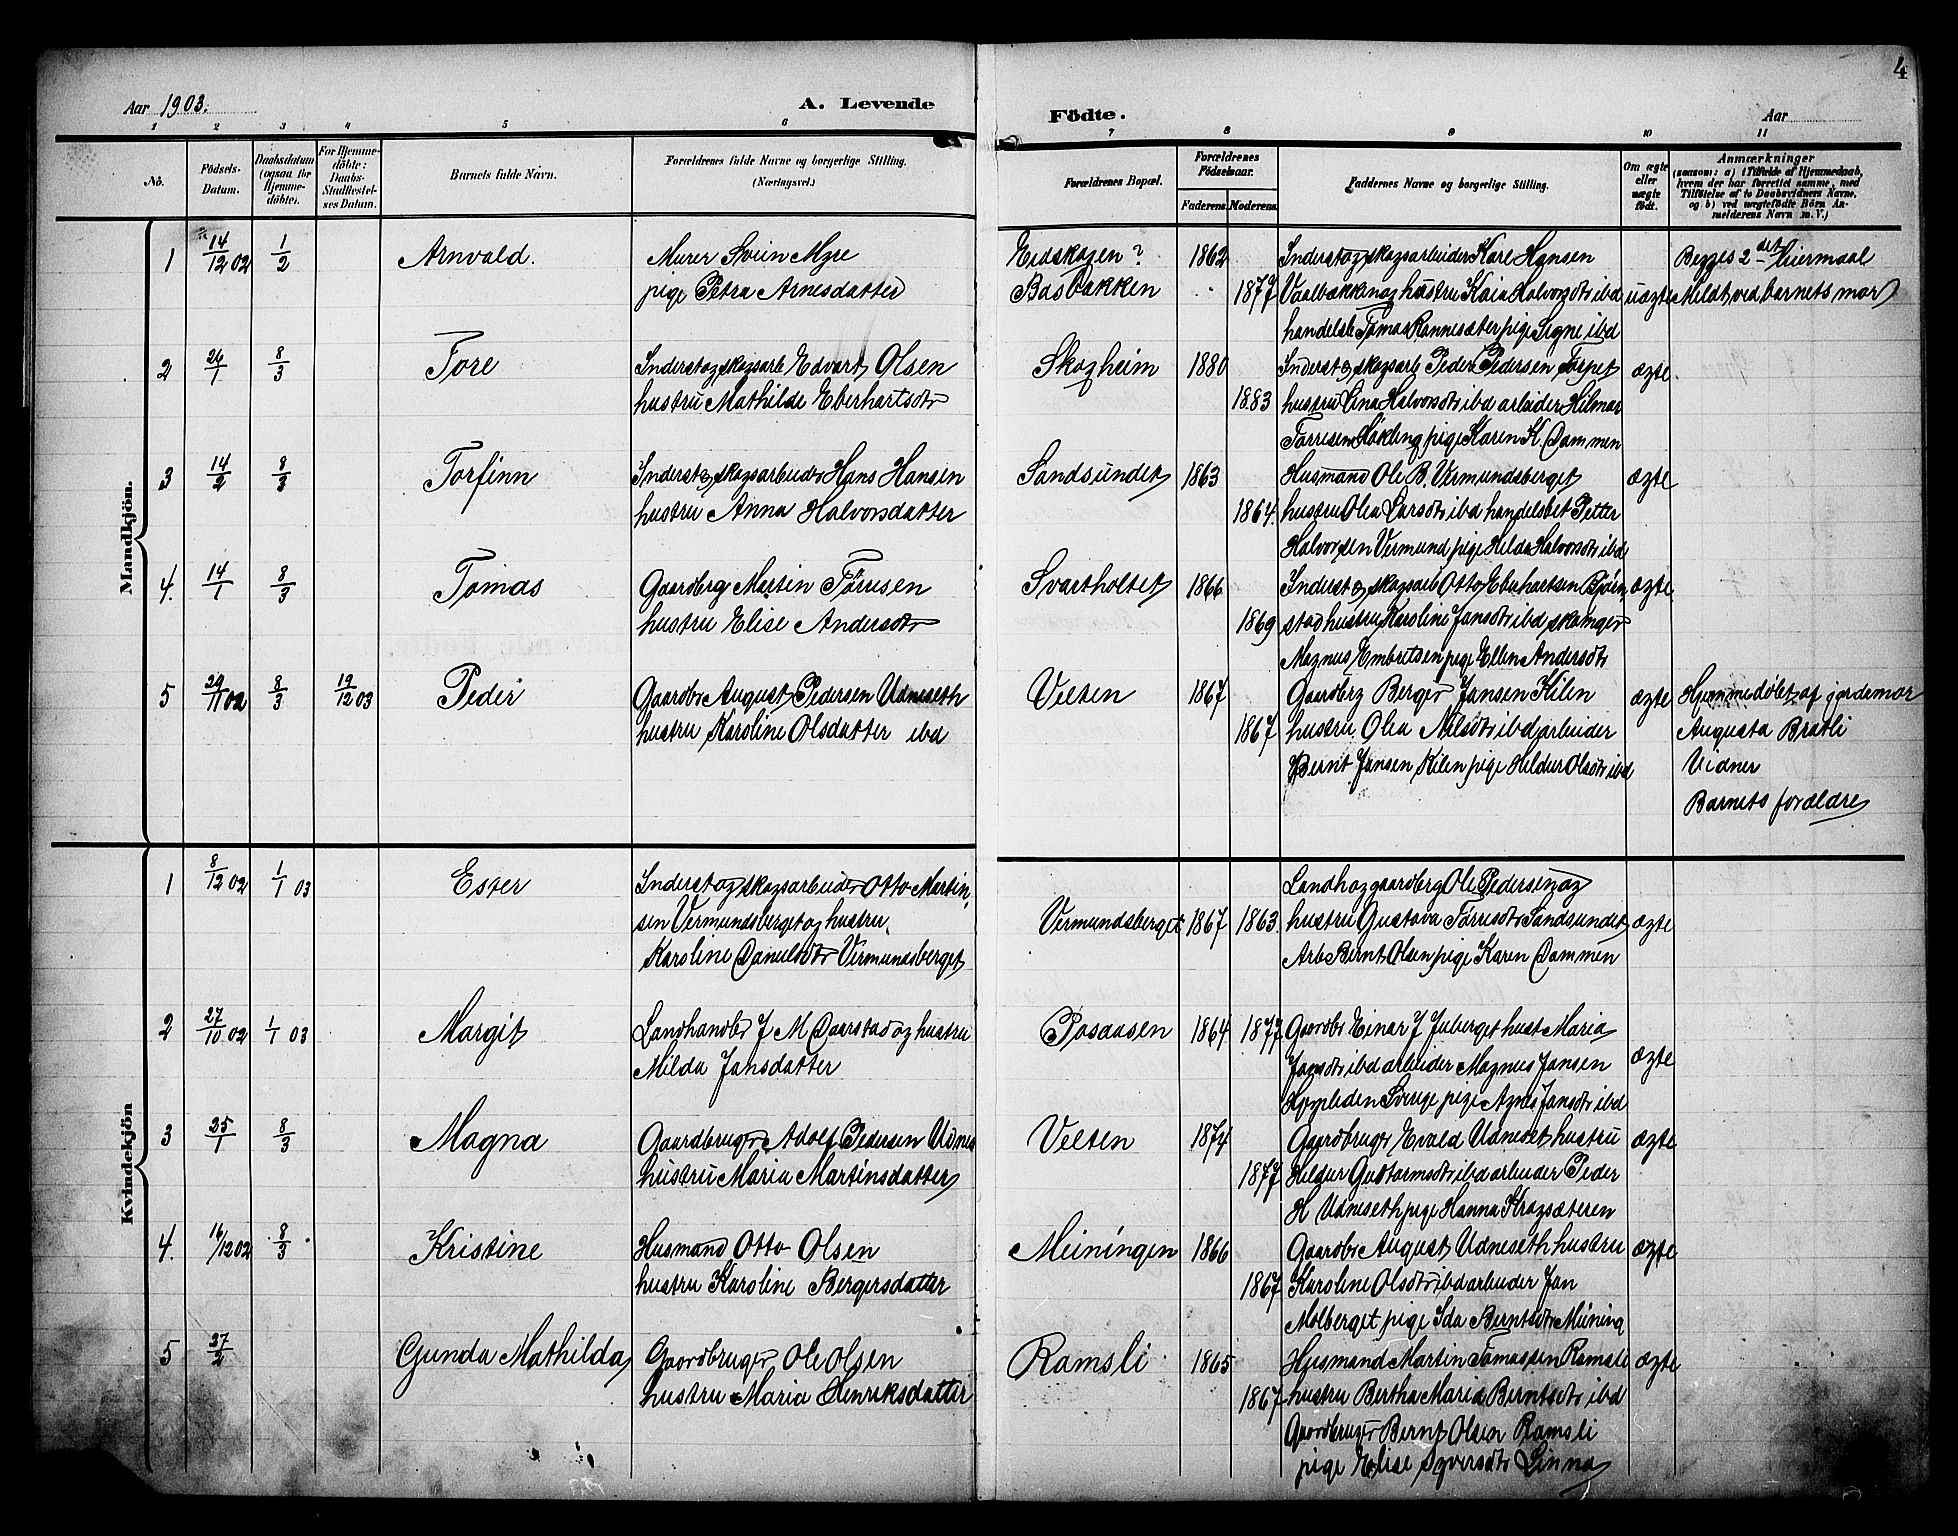 4
Aar 1903.
A. Levende Födte.
Aar
1 2 3 4 5 6 7 8 9 10 11
No.
Födsels-Datum.
Daabsdatum (ogsaa for Hjemmedöbte).
For Hjemmedöbte: Daabs-Stadfestelses Datum.
Barnets fulde Navn.
Forældrenes fulde Navne og borgerlige Stilling. (Næringsvei.)
Forældrenes Bopæl.
Forældrenes Födselsaar.
Faderens. Moderens.
Faddernes Navne og borgerlige Stilling.
Om ægte eller uægte födt.
Anmærkninger
(saasom: a) i Tilfælde af Hjemmedaab, hvem der har forrettet samme, med Tilföielse af to Daabsvidners Navne, og b) ved uægtefödte Börn Anmelderens Navn m. V.)
Mandkjön.
1 14/12 02 1/2 Arnvald. Murer Svein Myre Eidskogen? 1862 Inderst og skogsarbeider Kare Hansen Begges 2det leiermaal
pige Petra Arnesdatter Basbakken 1877 Vaalbækken og hustru Kaia Halvorsdtr ibd uægte Meldt ved barnets mor
handelsb Tomas Rannesæter pige Signe ibd
2 26/1 8/3 Tore Inderst og skogsarb Edvart Olsen Skogheim 1880 Inderst og skogsarb Peder Pedersen Torpet ægte
hustru Mathilde Eberhartsdtr 1883 hustru Lina Halvorsdtr ibd arbeider Hilmar
Torresen Høkling pige Karen K Dammen
3 14/2 8/3 Torfinn Inderst og skogsarbeider Hans Hansen Sandsundet 1863 Husmand Ole B. Vermundsberget ægte
hustru Anna Halvorsdatter 1864. hustru Olia Larsdtr ibd handelsbet Petter
Halvorsen Vermund pige Hilda Halvorsdtr ibd
4. 14/1 8/3 Tomas Gaardbrg Martin Tørresen Svartholtet 1866 Inderst og skogsarb Otto Eberhartsen Bjørn- ægte
hustru Elise Andersdtr 1869 stad hustru Karoline Jansdtr ibd
Magnus Embretsen pige Ellen Andersdtr
5 29/11 02 8/3 19/12 03 Peder Gaardbr August Pedersen Udneseth Velten 1867 Gaardbrg Berger Jansen Kilen ægte Hjemmedøbt af jordemor
hustru Karoline Olsdatter ibd 1867 hustru Olia Nilsdtr ibd arbeider Augusta Bratli
Bernt Jansen Kilen pige Hildur Olsdtr ibd Vidner
Barnets forældre
Kvindekjön
1 8/12 02 1/1 03 Ester Inderst og skogsarbeider Otto Martin- Landh og gaardbrg Ole Pedersen og
sen Vermundsberget og hustru Vermundsberget 1867 1863. hustru Gustava Torresdtr Sandsundet ægte
Karoline Danielsdtr Vermundsberget Arb Bernt Olsen pige Karen Dammen
2 27/10 02 1/1 03 Margit Landhandlr J M Daarstad og hustru Posaasen 1864 1877 Gaardbr Einar J Juberget hust Maria
Milda Jansdatter Jansdtr ibd arbeider Magnus Jansen ægte
Sverige pige Agnes Jansdtr ibd
3 25/1 8/3 Magna Gaardbruger Adolf Pedersen Udnes Velten 1874 Gaardbruger Evald Udneset hustru ægte
hustru Maria Martinsdatter 1877 Hildur Gustavsdtr ibd arbeider Peder
H Udneseth pige Hanna Kragsæteren
4. 16/12 02 8/3 Kristine Husmand Otto Olsen Meiningen 1866 Gaardbr August Udneseth hustru ægte
hustru Karoline Bergersdatter 1867 Karoline Olsdtr ibd arbeider Jan
Molberget pige Ida Berntsdtr Meining
5 27/2 Gunda Mathilda Gaardbruger Ole Olsen Ramsli 1865 Husmand Martin Tomassen Ramsli ægte
hustru Maria Henriksdatter 1867 hustru Bertha Maria Berntsdtr ibd
Gaardbruger Bernt Olsen Ramsli
pige Elise Syversdtr Linna